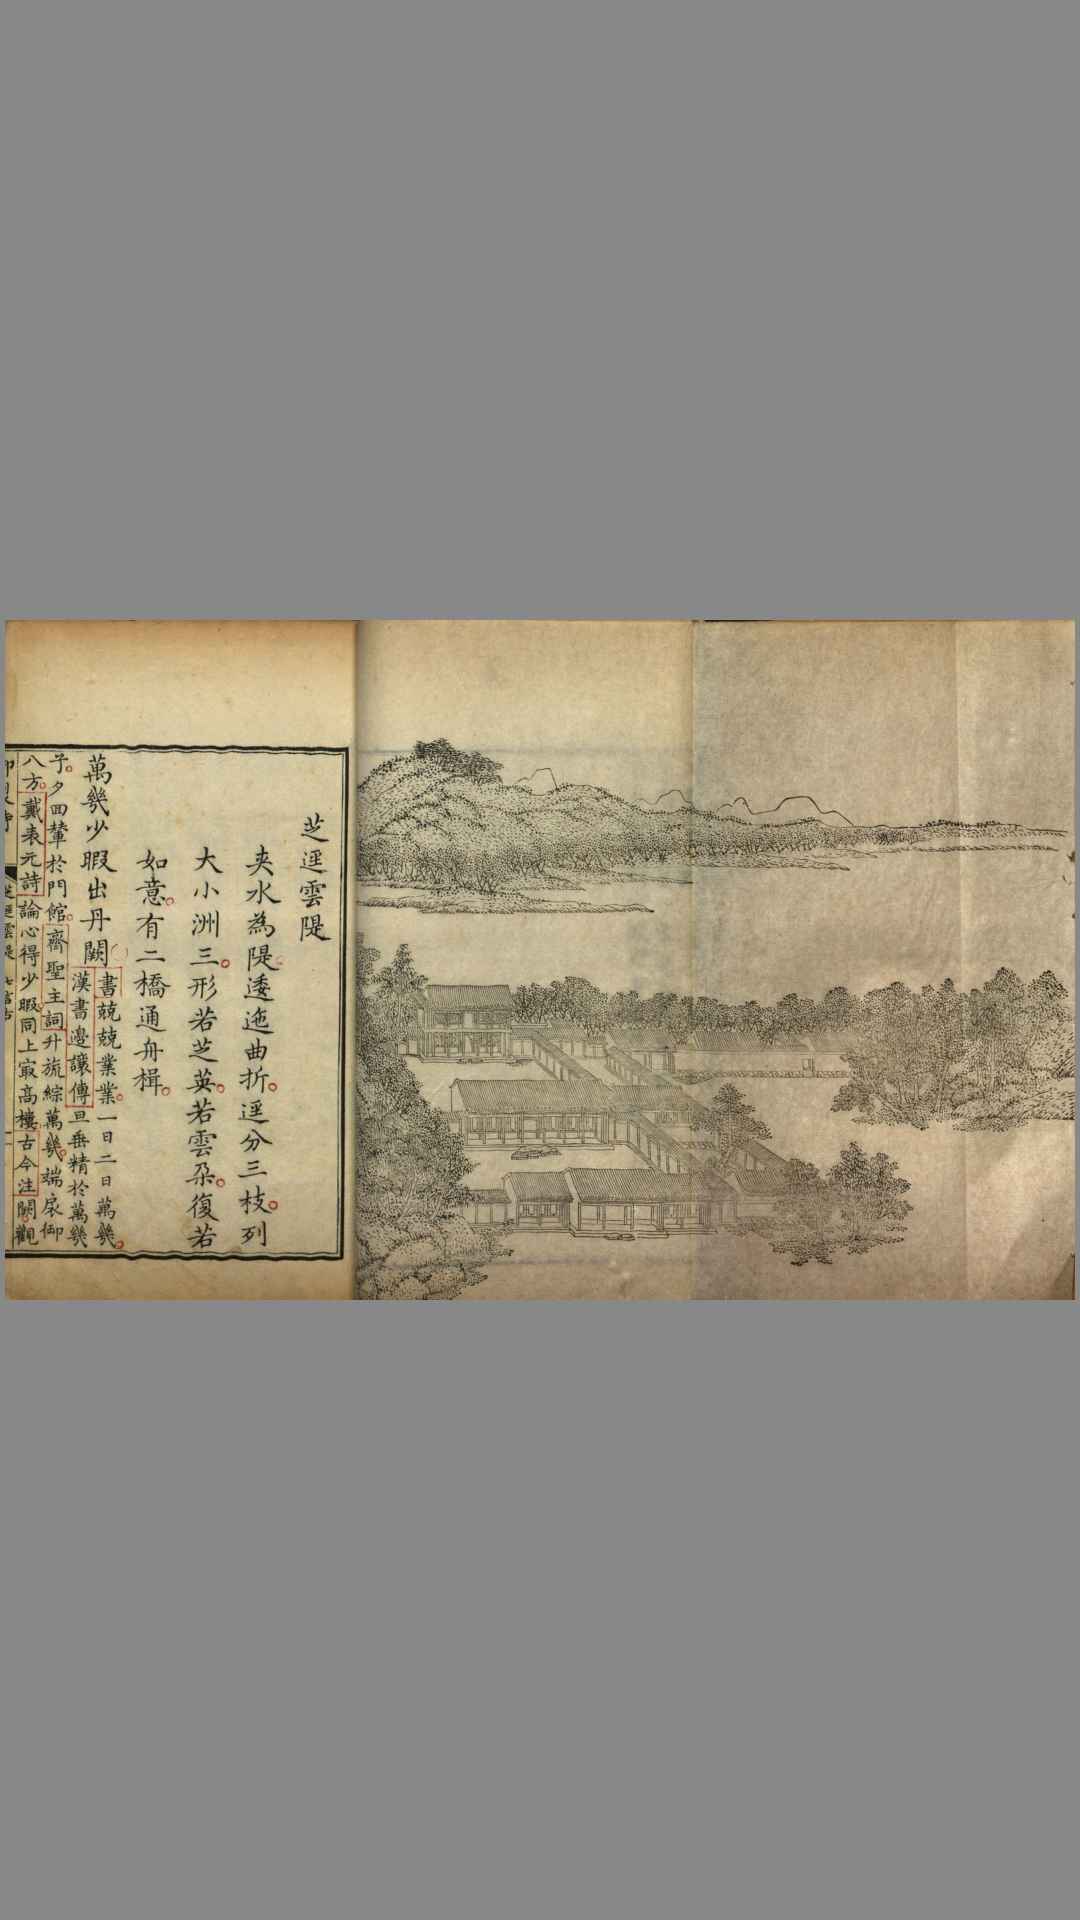 芝逕雲隄
夾水為隄。逶迤曲折。逕分三枝。列
大小洲三。形若芝英。若雲朶。復若
如意。有二橋通舟楫。
萬幾少暇出丹闕
書兢兢業業。一日二日萬幾。
漢書邊讓傳旦垂精於萬幾
子。夕回輦於門館。齊聖主詞升旒綜萬幾。端扆御
八方。戴表元詩論心得少暇。同上最高樓古今注闕觀